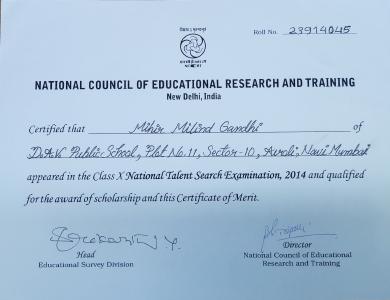 Roll No. 23914045
NATIONAL COUNCIL OF EDUCATIONAL RESEARCH AND TRAINING
New Delhi, India
Certified that Mihir Milind Gandhi of
D.A.V. Public School, Plot No. 11, Sector-10, Airoli, Navi Mumbai
appeared in the Class X National Talent Search Examination, 2014 and qualified
for the award of scholarship and this Certificate of Merit.
Head
Educational Survey Division
Director
National Council of Educational
Research and Training